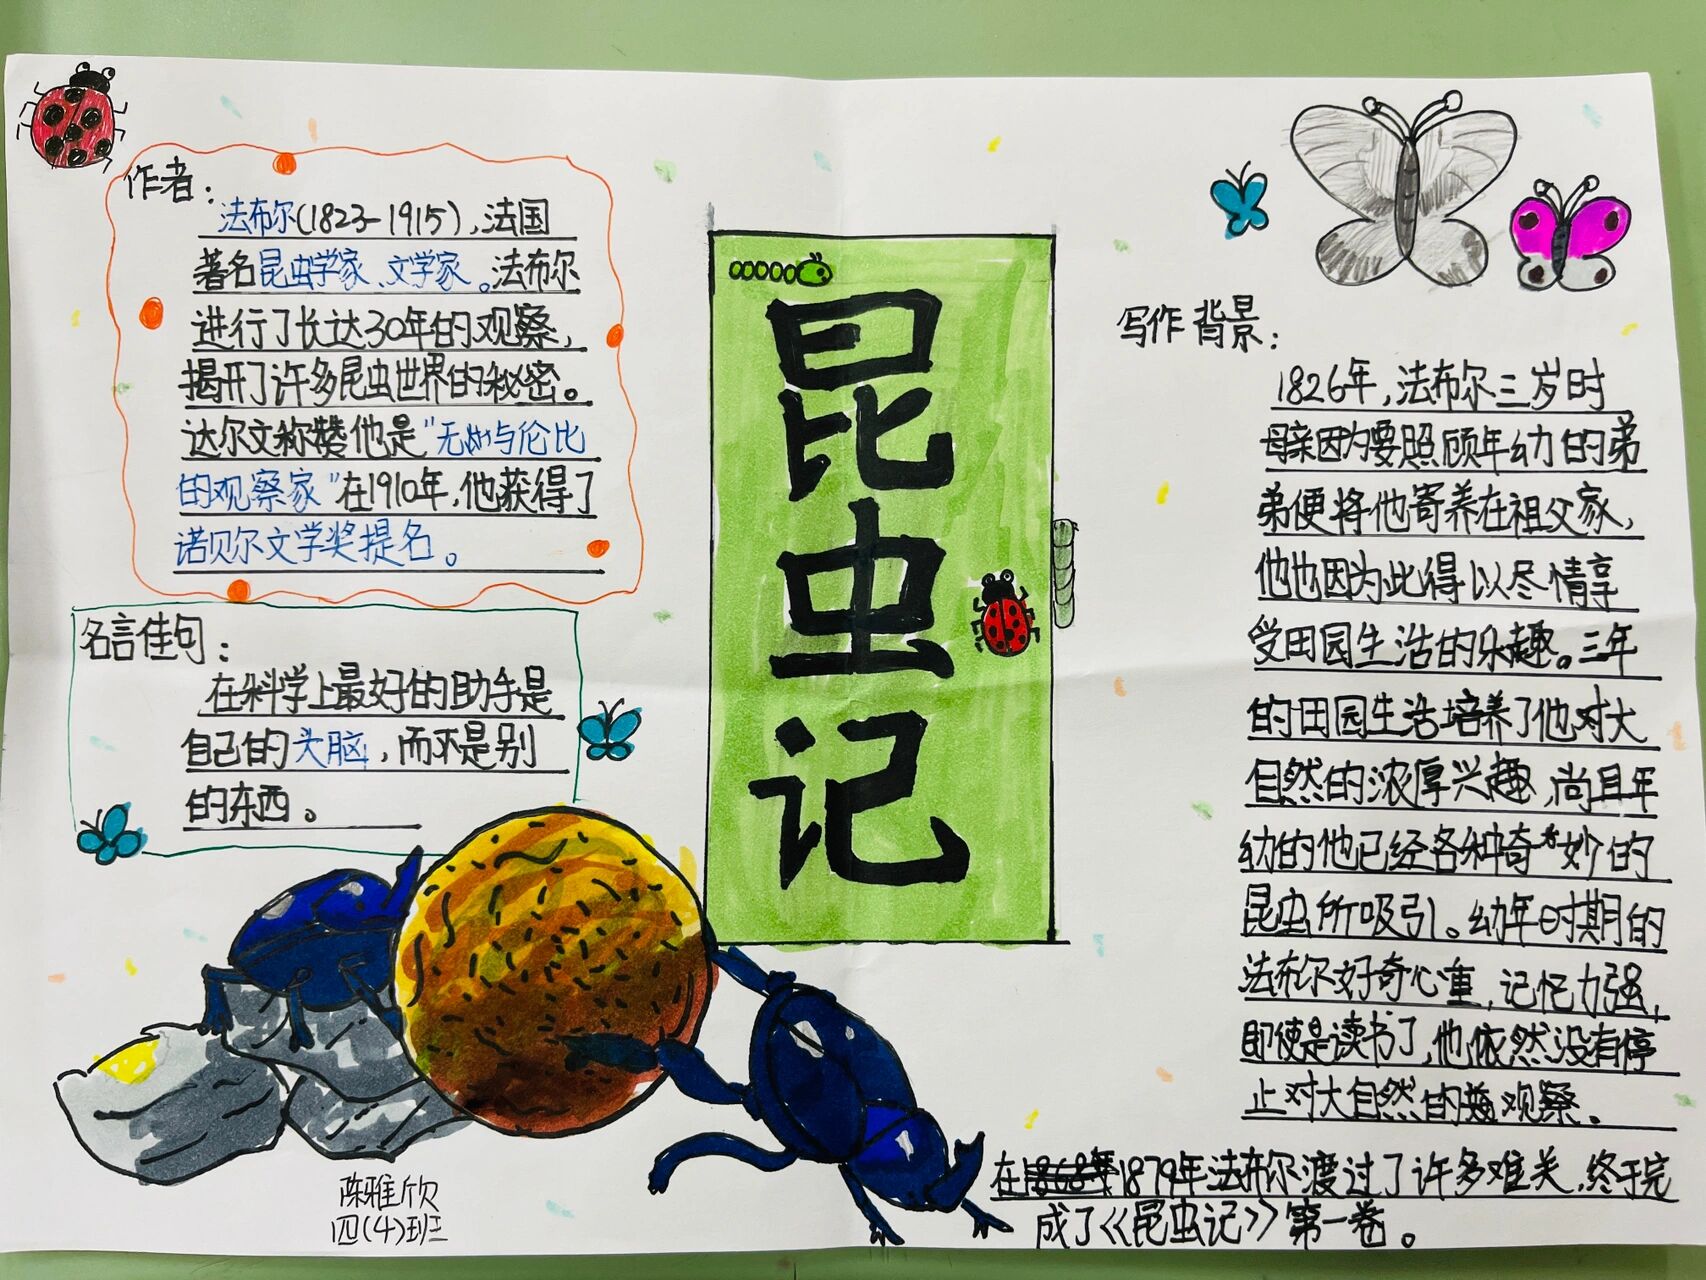 作者：
法布尔(1823-1915),法国
著名昆虫学家、文学家。法布尔
进行了长达30年的观察，
揭开了许多昆虫世界的秘密。
达尔文称赞他是"无与伦比
的观察家"在1910年,他获得了
诺贝尔文学奖提名。
名言佳句：
在科学上最好的助手是
自己的头脑,而不是别
的东西。
昆虫记
写作背景：
1826年,法布尔三岁时
母亲因为要照顾年幼的弟
弟便将他寄养在祖父家,
他也因为此得以尽情享
受田园生活的乐趣。三年
的田园生活培养了他对大
自然的浓厚兴趣,尚且年
幼的他已经各种奇妙的
昆虫所吸引。幼年时期的
法布尔好奇心重,记忆力强,
即使是读书了,他依然没有停
止对大自然的观察。
在1868年1879年法布尔渡过了许多难关,终于完
成了《昆虫记》第一卷。
陈雅欣
四(4)班